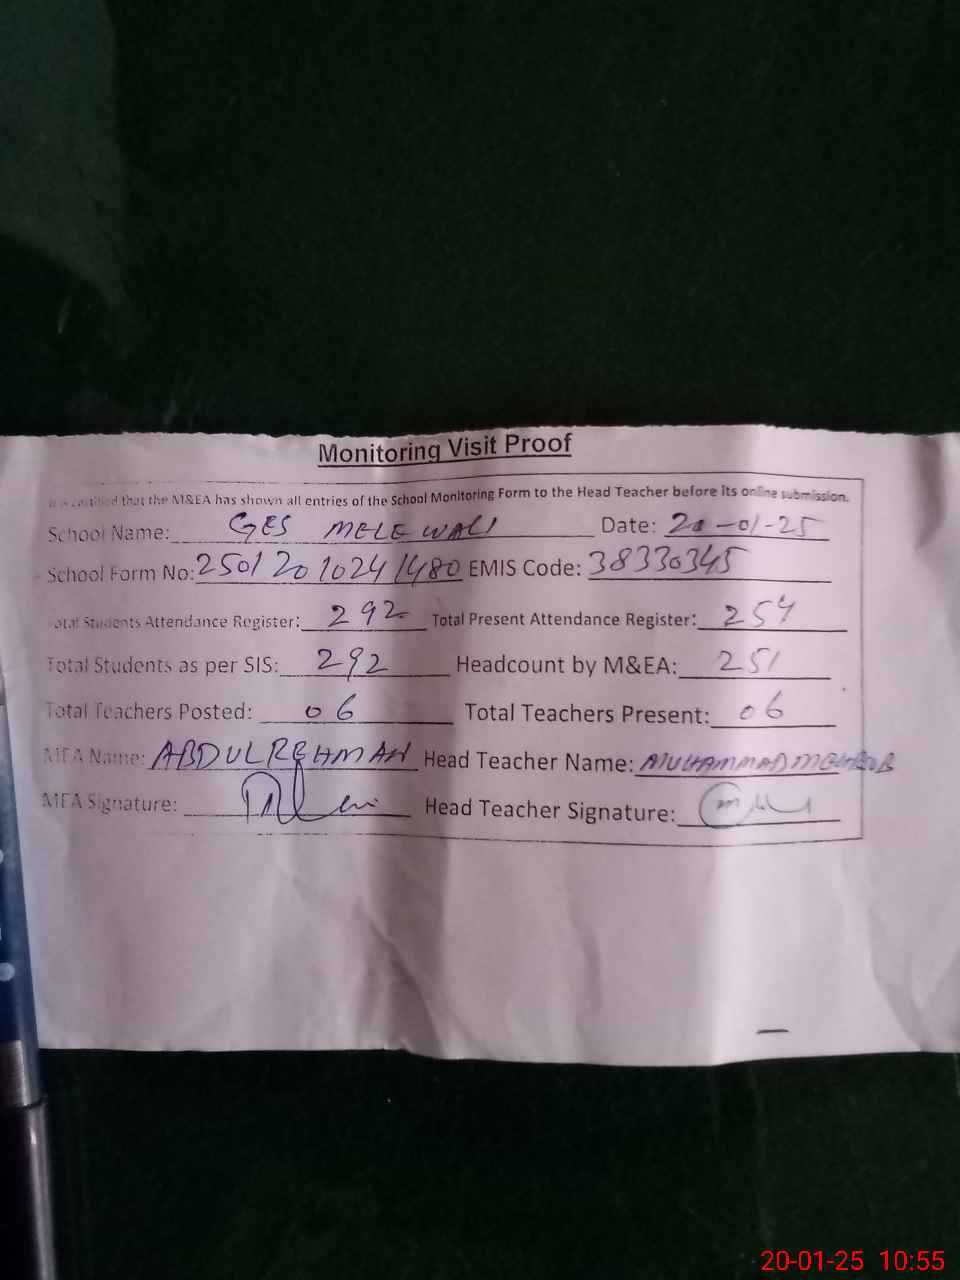 Monitoring Visit Proof
It is certified that the M&EA has shown all entries of the School Monitoring Form to the Head Teacher before its online submission.
School Name: GES MELE WALI Date: 20-01-25
School Form No: 2501201024 1480 EMIS Code: 38330345
Total Students Attendance Register: 292 Total Present Attendance Register: 254
Total Students as per SIS: 292 Headcount by M&EA: 251
Total Teachers Posted: 06 Total Teachers Present: 06
MEA Name: ABDUL REHMAN Head Teacher Name: MUHAMMAD MEHBOOB
MEA Signature: Head Teacher Signature:
20-01-25 10:55